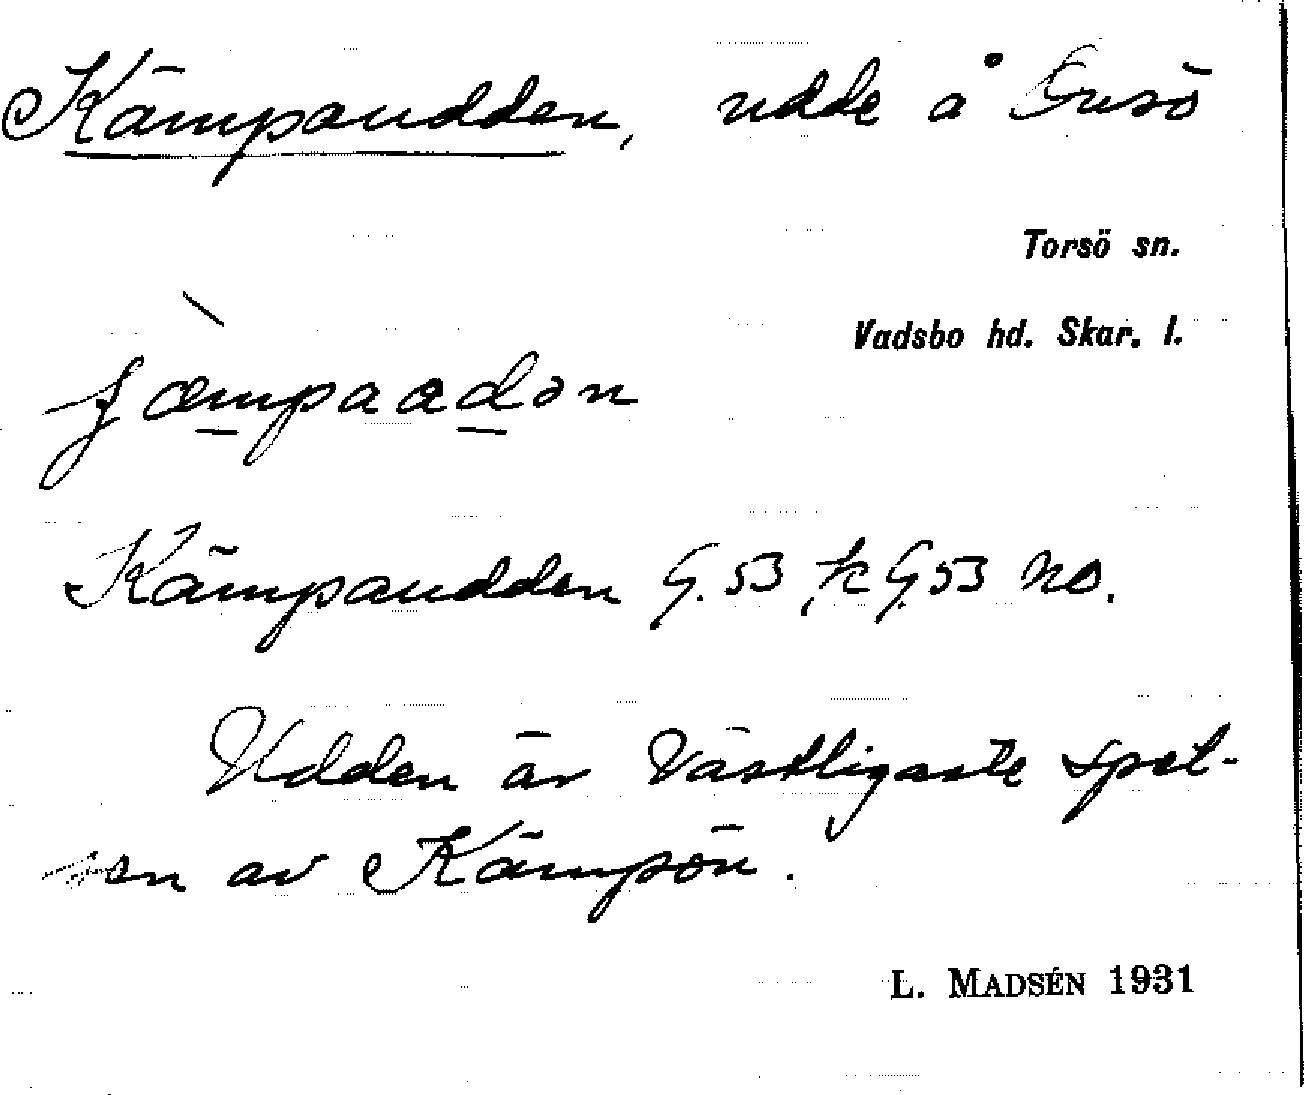 Kämpaudden, udde å Onsö
Torsö sn.
Vadsbo hd. Skar. l.
Kämpaudden G. 53, k G. 53 no.
Udden är västligaste spet-
sen av Kämpön.
L. MADSÉN 1931